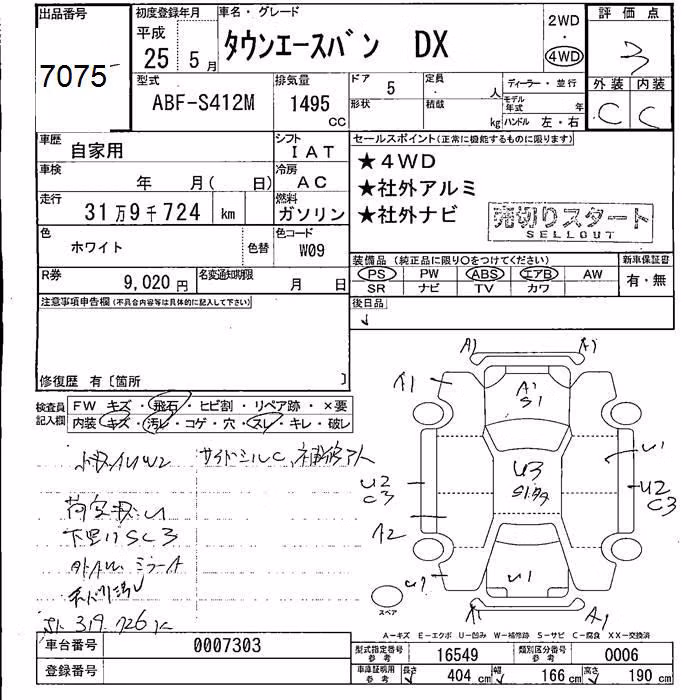 出品番号
7075
初度登録年月
平成
25 5 月
車名・グレード
タウンエースバン DX
2WD
・
4WD
評価点
3
外装 内装
C C
型式
ABF-S412M
排気量
1495
CC
ドア
5
定員
人
形状
積載
kg
ディーラー・並行
モデル年式
年
ハンドル 左・右
車歴
自家用
シフト
IAT
車検
年 月( 日)
冷房
AC
走行
31万9千724 km
燃料
ガソリン
色
ホワイト
色替
色コード
W09
R券
9,020円
名変通知期限
月 日
セールスポイント(正常に機能するものに限ります)
★4WD
★社外アルミ
★社外ナビ
売切りスタート
SELLOUT
装備品(純正品に限り○をつけてください)
新車保証書
PS PW ABS エアB AW
SR ナビ TV カワ
有・無
後日品
注意事項申告欄(不具合内容等は具体的に記入して下さい)
修復歴 有〔箇所 〕
検査員
記入欄
FW キズ・飛石・ヒビ割・リペア跡・×要
内装・キズ・汚レ・コゲ・穴・スレ・キレ・破レ
小キズAUW2 サイドシルC、補修アト
下廻りSC3
ミラーA
319.726K
A1
A1
A1
A1
S1
U1
U2
C3
U3
S1
U2
C3
A2
U1
U1
A1
A1
スペア
A-キズ E-エクボ U-凹み W-補修跡 S-サビ C-腐食 XX-交換済
車台番号
0007303
登録番号
型式指定番号
参考
16549
類別区分番号
参考
0006
車庫証明用
参考
長さ
404 cm
幅
166 cm
高さ
190 cm